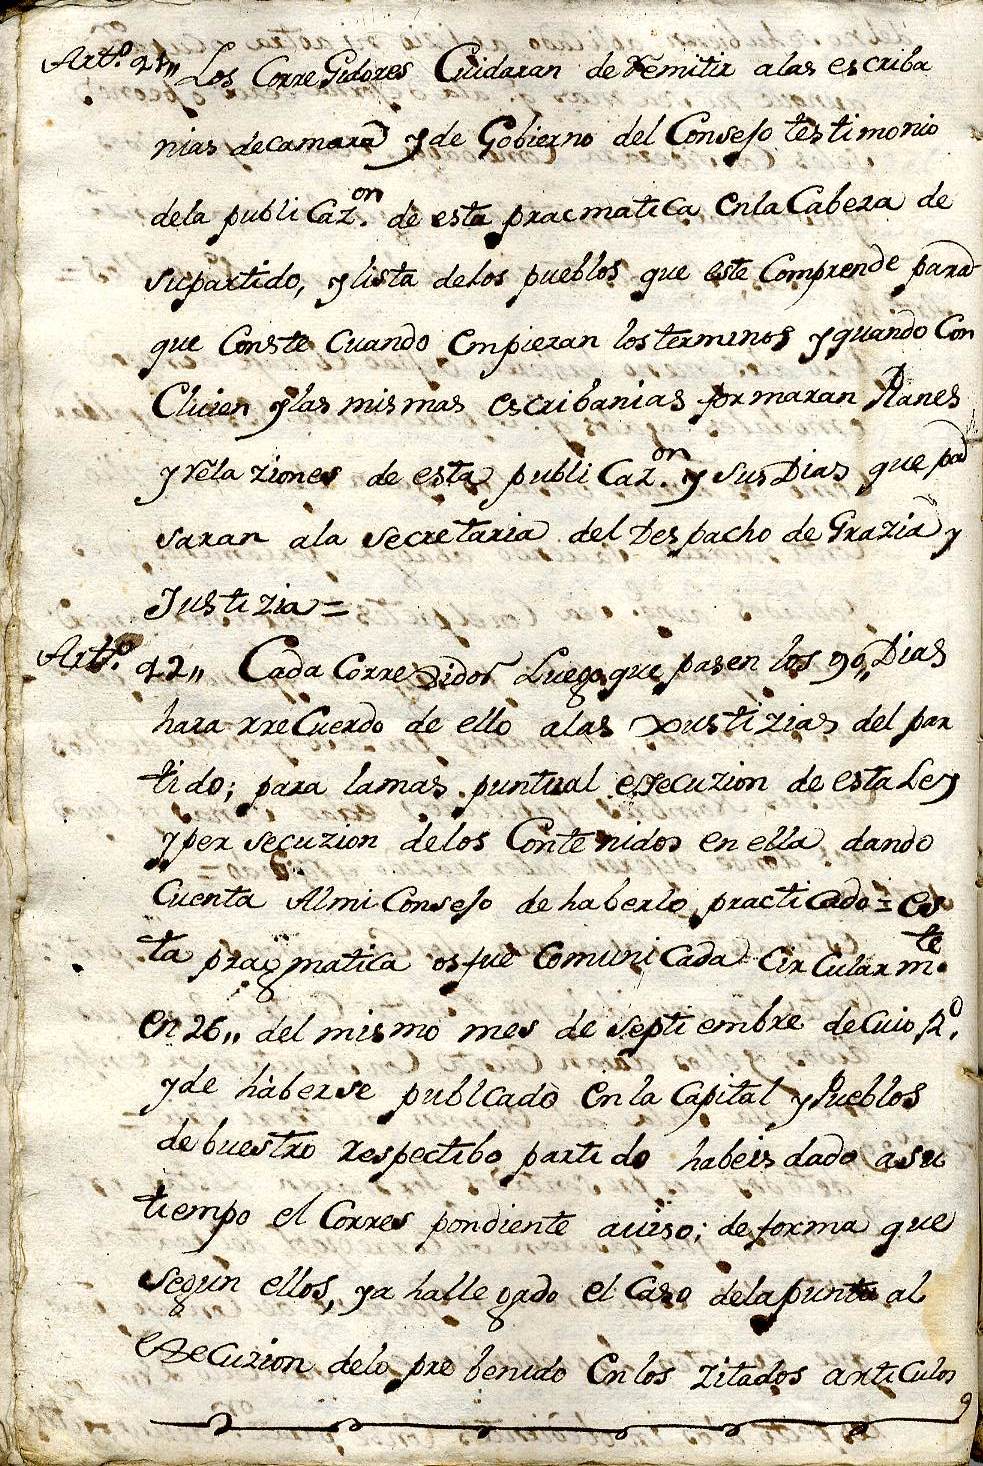 Artº. 41,, Los CorreGidores Cuidaran de Remitir alas escriba
nias decamara y de Gobierno del Consejo testimonio
dela publiCazon. de esta pracmatica enla Cabeza de
supartido, y lista delos pueblos que este Comprende para
que Conste Cuando empiezan los terminos y quando Con
Cluien y las mismas escribanias formaran Planes
y relaziones de esta publiCazon. y sus Dias que pa
saran ala secretaria del Despacho de Grazia y
Justizia =
Artº. 42,, Cada Corregidor Luego que pasen los 90,, Dias
hara rreCuerdo de ello alas Justizias del par
tido; para lamas puntual ejecuzion de esta Ley
y persecuzion delos Contenidos en ella dando
Cuenta Almi Consejo de haberlo practicado = es
ta pragmatica os fue ComuniCada CirCularmte.
en 26,, del mismo mes de septiembre de Cuio Rdo.
y de haberse publcado en la Capital y Pueblos
de buestro respectibo partido habeis dado a su
tiempo el Correspondiente auiso; de forma que
segun ellos, ya hallegado el Caso dela puntual
ejecuzion delo prebenido en los zitados artiCulos
9